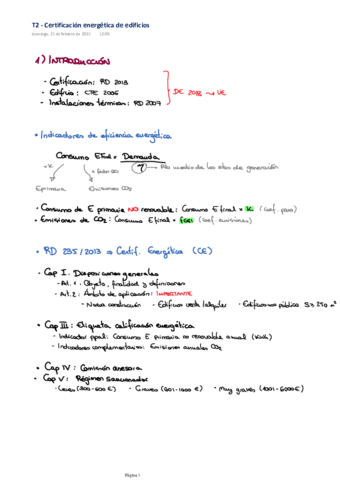 T2 - Certificación energética de edificios
domingo, 21 de febrero de 2021
1) INTRODUCCIÓN
- Certificación: RD 2013
- Edificio: CTE 2006
- Instalaciones térmicas: RD 2007
DE 2018 → UE
• Indicadores de eficiencia energética
Consumo EFinal = Demanda
η → Rto medio de los
de generación
Eprimaria Emisiones CO2
• Consumo de E primaria NO renovable: Consumo E final × K (coef. paso)
• Emisiones de CO2: Consumo E final × (coef. emisiones)
• RD 235/2013 ⇒ Certif. Energética (CE)
• Cap I. Disposiciones generales
- Art. 1. Objeto, finalidad y definiciones
- Art. 2: Ámbito de aplicación: IMPORTANTE
- Nueva construcción - Edificios venta/alquiler - Edificios uso público S > 250 m²
• Cap III: Etiqueta calificación energética
- Indicador ppal: Consumo E primaria no renovable anual
- Indicadores complementarios: Emisiones anuales CO2
• Cap IV: Comisión asesora
• Cap V: Régimen sancionador
- Leves (300-600€) - Graves (601-1000€) - Muy graves (1001-6000€)
Página 1